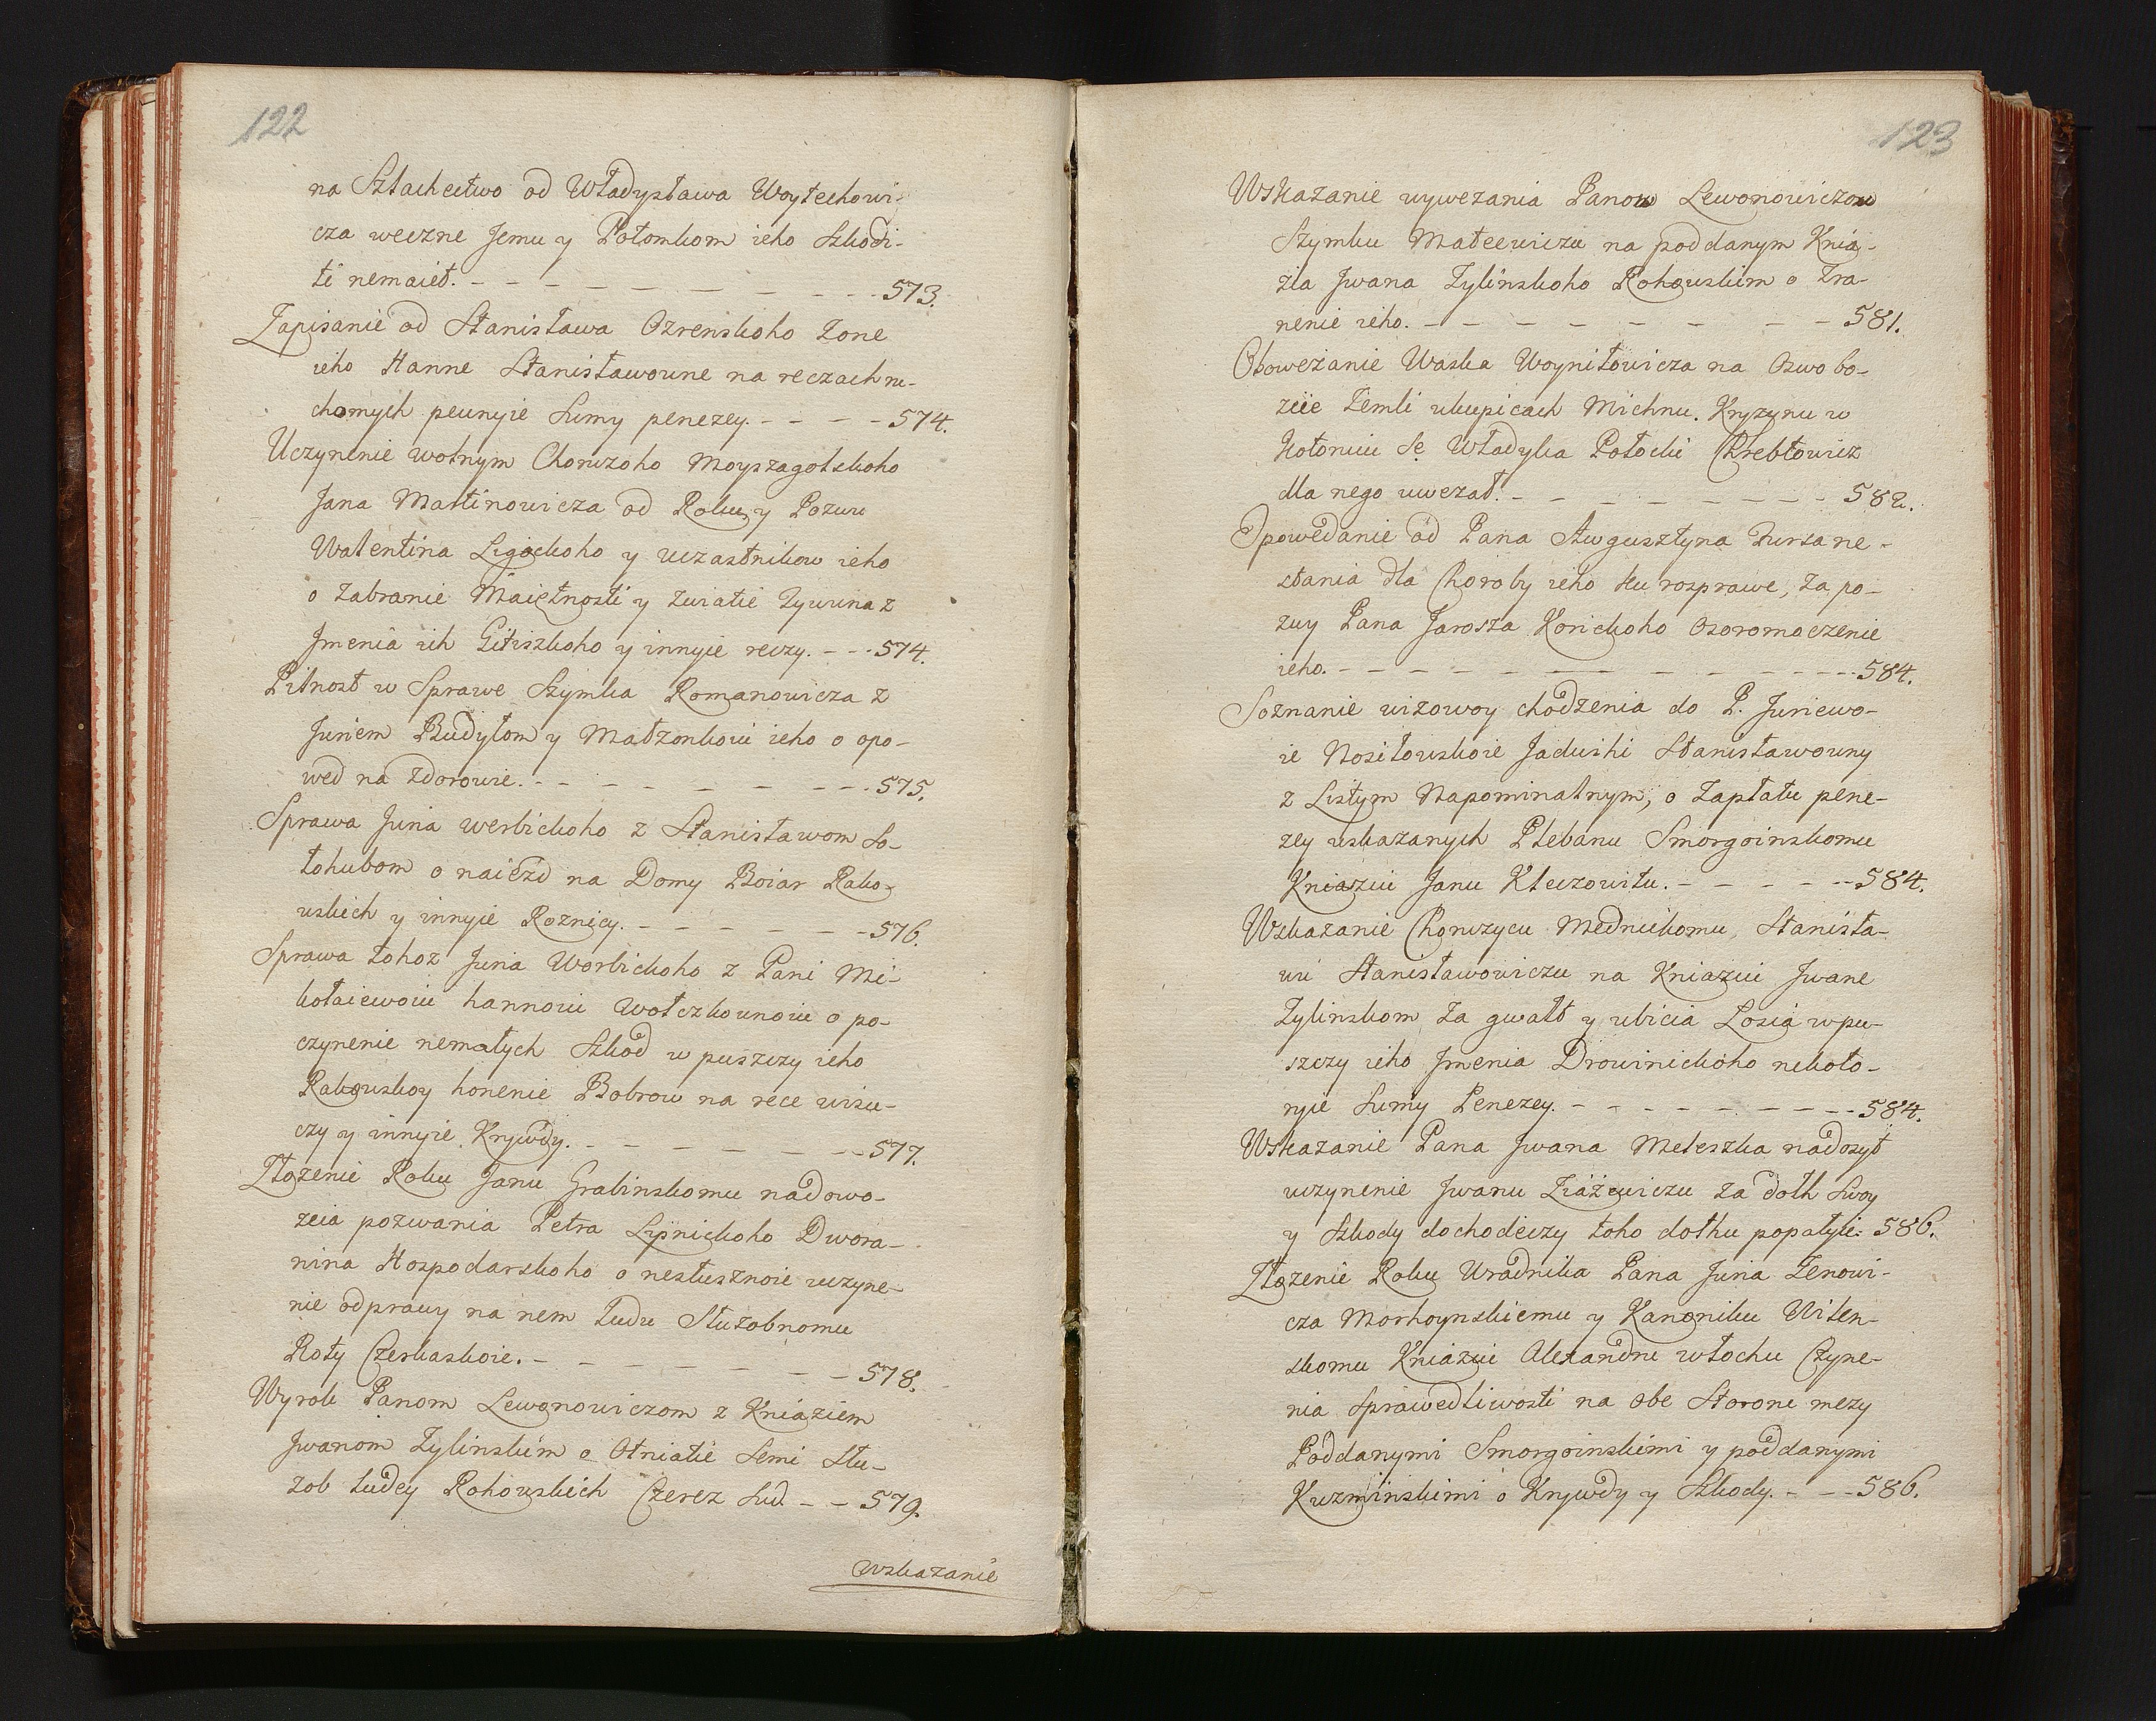 122
na Szlachectwo od Władysława Woytechowi-
cza weczne Jemu y Potomkom ieho szkodi-
ti nemaiet. - - - - - - - - - 573.
Zapisanie od Stanisława Ozrenskoho Zone
ieho Hanne Stanisławowne na reczach ru-
chomych pewnyie Sumy penezey. - - - - 574.
Uczynenie wolnym Chorużoho Moyszagolskoho
Jana Martinowicza od Roku y Pozwu
Walentina Ligockoho y uczastnikow ieho
o Zabranie Maiętnosti y zwiatie Zywina z
Jmenia ich Gitiszkoho y innyie reczy. - - - 574.
Pilnost w Sprawe Szymka Romanowicza z
Juriem Budyłom y Małzonkoiu ieho o opo-
wed na zdorowie. - - - - - - - - 575.
Sprawa Juria werbickoho z Stanisławom So-
łohubom o naiezd na Domy Boiar Rako-
wskich y innyie Roznicy. - - - - - - 576.
Sprawa tohoz Juria Worbickoho z Pani Mi-
kołaiewoiu hannoiu Wołczkownoiu o po-
czynenie nemałych Szkod w puszczy ieho
Rakowskoy honenie Bobrow na rece wiżu-
czy y innyie Krywdy. - - - - - - 577.
Złożenie Roku Janu Grabinskomu na dowo-
zeia pozwania Petra Lipnickoho Dwora-
nina Hospodarskoho o nesłusznoie uczyne-
nie odprawy na nem ludu Służobnomu
Roty Czerkaskoie. - - - - - - - 578.
Wyrok Panom Lewonowiczom z Kniaziem
Jwanom Zylinskim o Otniatie Semi Słu-
zob ludey Rohowskich Czerez Sud. - - 579.
Wskazanie
123
Wskazanie wywezania Panow Lewonowiczow
Szymku Mateewiczu na poddanym Knia-
zia Jwana Zylinskoho Rohowskim o Zra-
nenie ieho. - - - - - - - - - 581.
Obowezanie Waska Woyniłowicza na Oswobo-
zeie Zemli ukupicach Michnu. Kryzynu w
Kotoruiu Se Władyka Połocki Chrebtowicz
dla nego uwezał. - - - - - - - - 582.
Opowedanie od Pana Awgusztyna Fursa ne-
stania dla Choroby ieho ku rosprawe, za po-
zwy Pana Jarosza Korickoho Osoromoczenie
ieho. - - - - - - - - - - - 584.
Soznanie wizowoy chodzenia do P. Juriewo-
ie Nosiłowskoie Jadwihi Stanisławowny
z Listym Napominalnym, o Zapłatu pene-
zey uskazanych Plebanu Smorgoinskomu
Kniaziu Janu Kleczowitu. - - - - - 584.
Wskazanie Chorużycu Mednickomu, Stanisła-
wu Stanisławowiczu na Kniaziu Jwane
Zylinskom za gwałt y ubicia Łosia w pu-
szczy ieho Jmenia Drowinickoho nekoto-
ryie Sumy Penezey. - - - - - - - - 584.
Wskazanie Pana Jwana Meleszka na dosyt
uczynenie Jwanu Ziażewiczu za dołh Swoy
y Szkody dochodeczy toho dołhu popałyie. 586.
Złożenie Roku Uradnika Pana Juria Zenowi-
cza Morhoynskiemu y Kanoniku Wilen-
skomu Kniaziu Alexandru włochu Czyne-
nia Sprawedliwosti na obe Storone mezy
Poddanymi Smorgoinskimi y poddanymi
Kuzminskimi o Krywdy y Szkody. - - - 586.